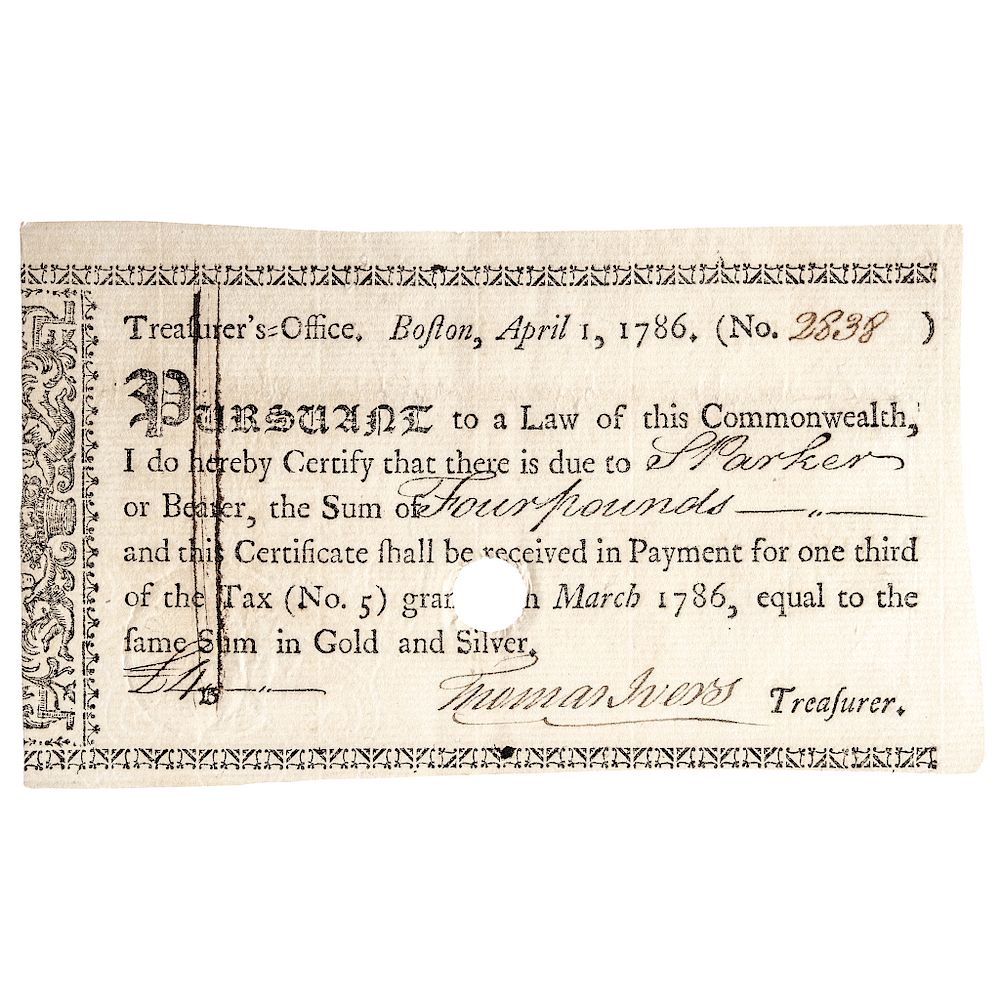 Treaſurer's-Office. Boſton, April 1, 1786. (No. 2838 )
PURSUANT to a Law of this Commonwealth,
I do hereby Certify that there is due to S Parker
or Bearer, the Sum of Four pounds — „ —
and this Certificate ſhall be received in Payment for one third
of the Tax (No. 5) gran n March 1786, equal to the
ſame Sum in Gold and Silver.
£4 — „ —
B
Thomas Ivers Treaſurer.